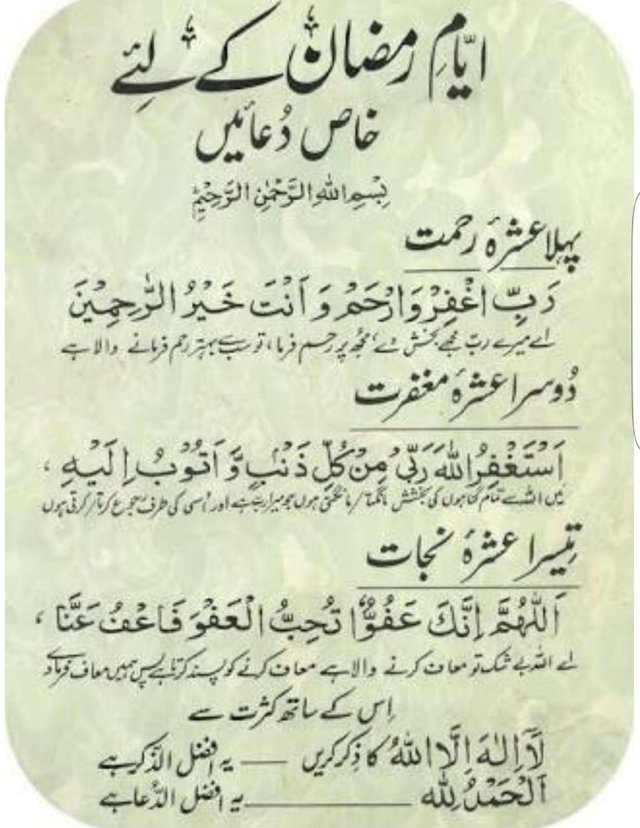 ایّامِ رمضان کے لئے
خاص دُعائیں
بِسْمِ اللهِ الرَّحْمٰنِ الرَّحِيْمِ
پہلا عشرۂ رحمت
رَبِّ اغْفِرْ وَارْحَمْ وَاَنْتَ خَيْرُ الرّٰحِمِيْنَ
اے میرے رب مجھے بخش دے، مجھ پر رحم فرما، تو سب سے بہتر رحم فرمانے والا ہے
دُوسرا عشرۂ مغفرت
اَسْتَغْفِرُ اللهَ رَبِّیْ مِنْ كُلِّ ذَنْۢبٍ وَّاَتُوْبُ اِلَيْهِ ،
میں اللہ سے تمام گناہوں کی بخشش مانگتا/مانگتی ہوں جو میرا رب ہے اور اُسی کی طرف رجوع کرتا/کرتی ہوں
تیسرا عشرۂ نجات
اَللّٰهُمَّ اِنَّكَ عَفُوٌّا تُحِبُّ الْعَفْوَ فَاعْفُ عَنَّا ،
اے اللہ بے شک تو معاف کرنے والا ہے معاف کرنے کو پسند کرتا ہے پس ہمیں معاف فرما دے
اِس کے ساتھ کثرت سے
لَآ اِلٰهَ اِلَّا اللهُ کا ذکر کریں —— یہ افضل الذّکر ہے
اَلْحَمْدُ لِلّٰه —————— یہ افضل الدُّعا ہے